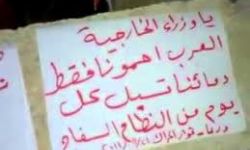 يا وزراء الخارجية
العرب احمونا فقط
دمائنا تسيل كل
يوم من النظام السفاح
درعا -